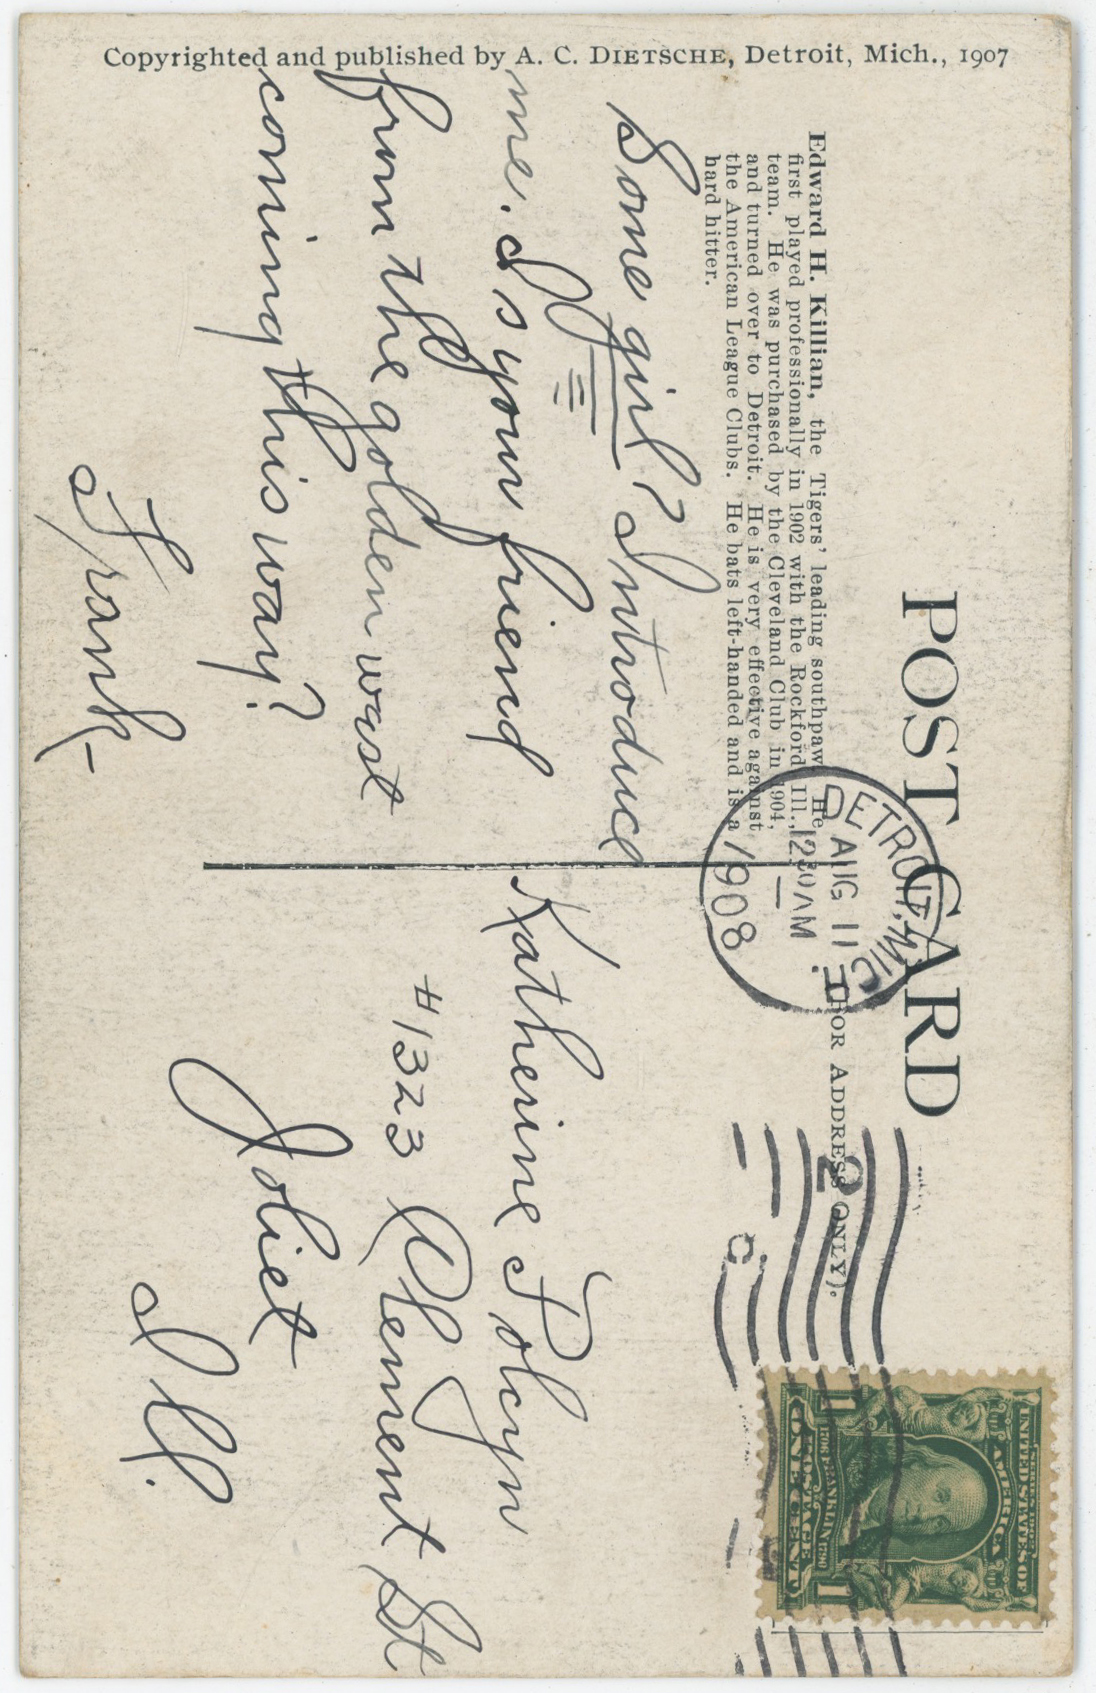 Copyrighted and published by A. C. DIETSCHE, Detroit, Mich., 1907
POST CARD
(FOR ADDRESS ONLY).
Edward H. Killian, the Tigers' leading southpaw. He
first played professionally in 1902 with the Rockford, Ill.,
team. He was purchased by the Cleveland Club in 1904,
and turned over to Detroit. He is very effective against
the American League Clubs. He bats left-handed and is a
hard hitter.
DETROIT, MICH.
AUG 11
1230 AM
1908
2
Some girl? Introduce
me. Is your friend
from the golden west
coming this way?
Frank-
Katherine Polcyn
#1323 Clement St
Joliet
Ill.
SERIES 1902
UNITED STATES OF
AMERICA
1706 FRANKLIN 1790
POSTAGE
1 ONE CENT 1